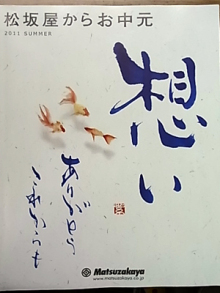 松坂屋からお中元
2011 SUMMER
想い
ありがとう
Matsuzakaya
www.matsuzakaya.co.jp